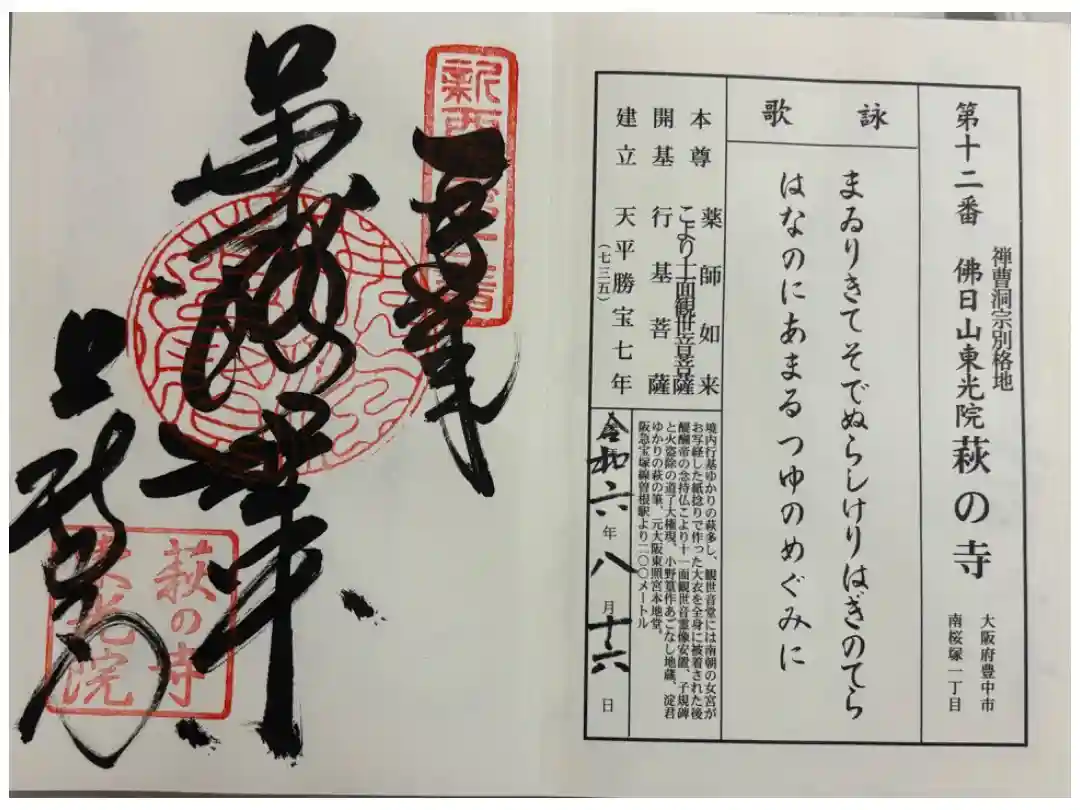 第十二番 佛日山東光院 萩の寺
禅曹洞宗別格地
大阪府豊中市
南桜塚一丁目
詠歌
まゐりきてそでぬらしけりはぎのてら
はなのにあまるつゆのめぐみに
本尊 薬師如来
こより十一面観世音菩薩
開基 行基菩薩
建立 天平勝宝七年
(七三五)
境内行基ゆかりの萩多し、観世音堂には南朝の女宮が
お写経した紙捻りで作った大衣を全身に被着された後
醍醐帝の念持仏こより十一面観世音霊像安置、子規碑
と火盗除の道了大権現、小野篁作あごなし地蔵、淀君
ゆかりの萩の筆、元大阪東照宮本地堂。
阪急宝塚線曽根駅より二〇〇メートル
令和六年八月十六日
新西国
萩の寺
東光院